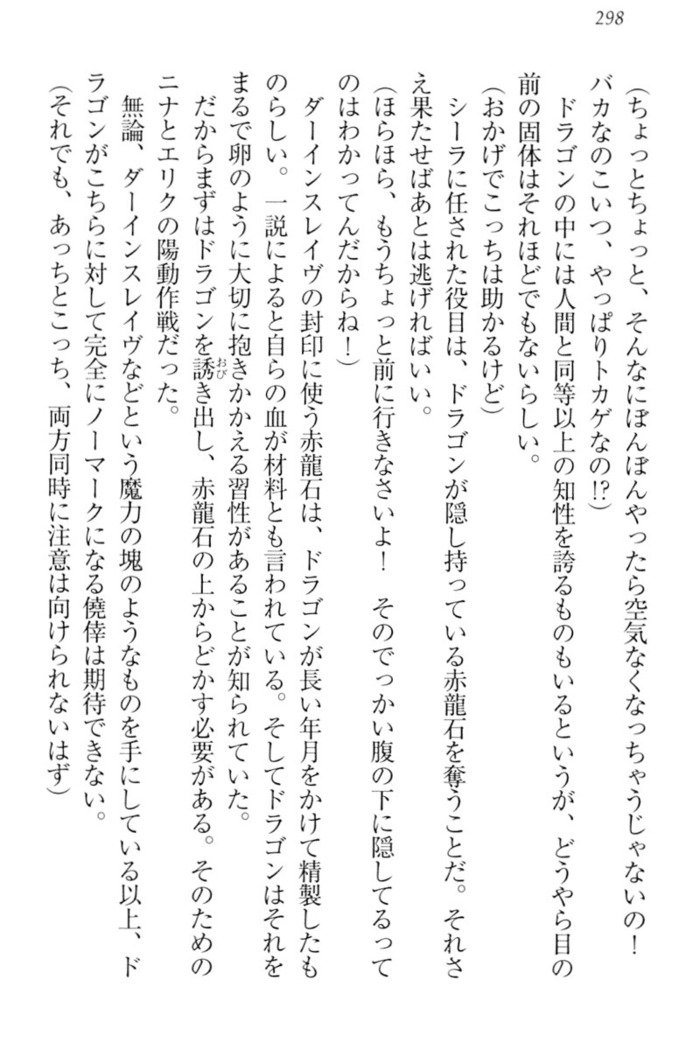 298
（ちょっとちょっと、そんなにぼんぼんやったら空気なくなっちゃうじゃないの！
バカなのこいつ、やっぱりトカゲなの!?）
ドラゴンの中には人間と同等以上の知性を誇るものもいるというが、どうやら目の
前の固体はそれほどでもないらしい。
（おかげでこっちは助かるけど）
シーラに任された役目は、ドラゴンが隠し持っている赤龍石を奪うことだ。それさ
え果たせばあとは逃げればいい。
（ほらほら、もうちょっと前に行きなさいよ！　そのでっかい腹の下に隠してるって
のはわかってんだからね！）
ダーインスレイヴの封印に使う赤龍石は、ドラゴンが長い年月をかけて精製したも
のらしい。一説によると自らの血が材料とも言われている。そしてドラゴンはそれを
まるで卵のように大切に抱きかかえる習性があることが知られていた。
だからまずはドラゴンを誘き出し、赤龍石の上からどかす必要がある。そのための
おび
ニナとエリクの陽動作戦だった。
無論、ダーインスレイヴなどという魔力の塊のようなものを手にしている以上、ド
ラゴンがこちらに対して完全にノーマークになる僥倖は期待できない。
（それでも、あっちとこっち、両方同時に注意は向けられないはず）